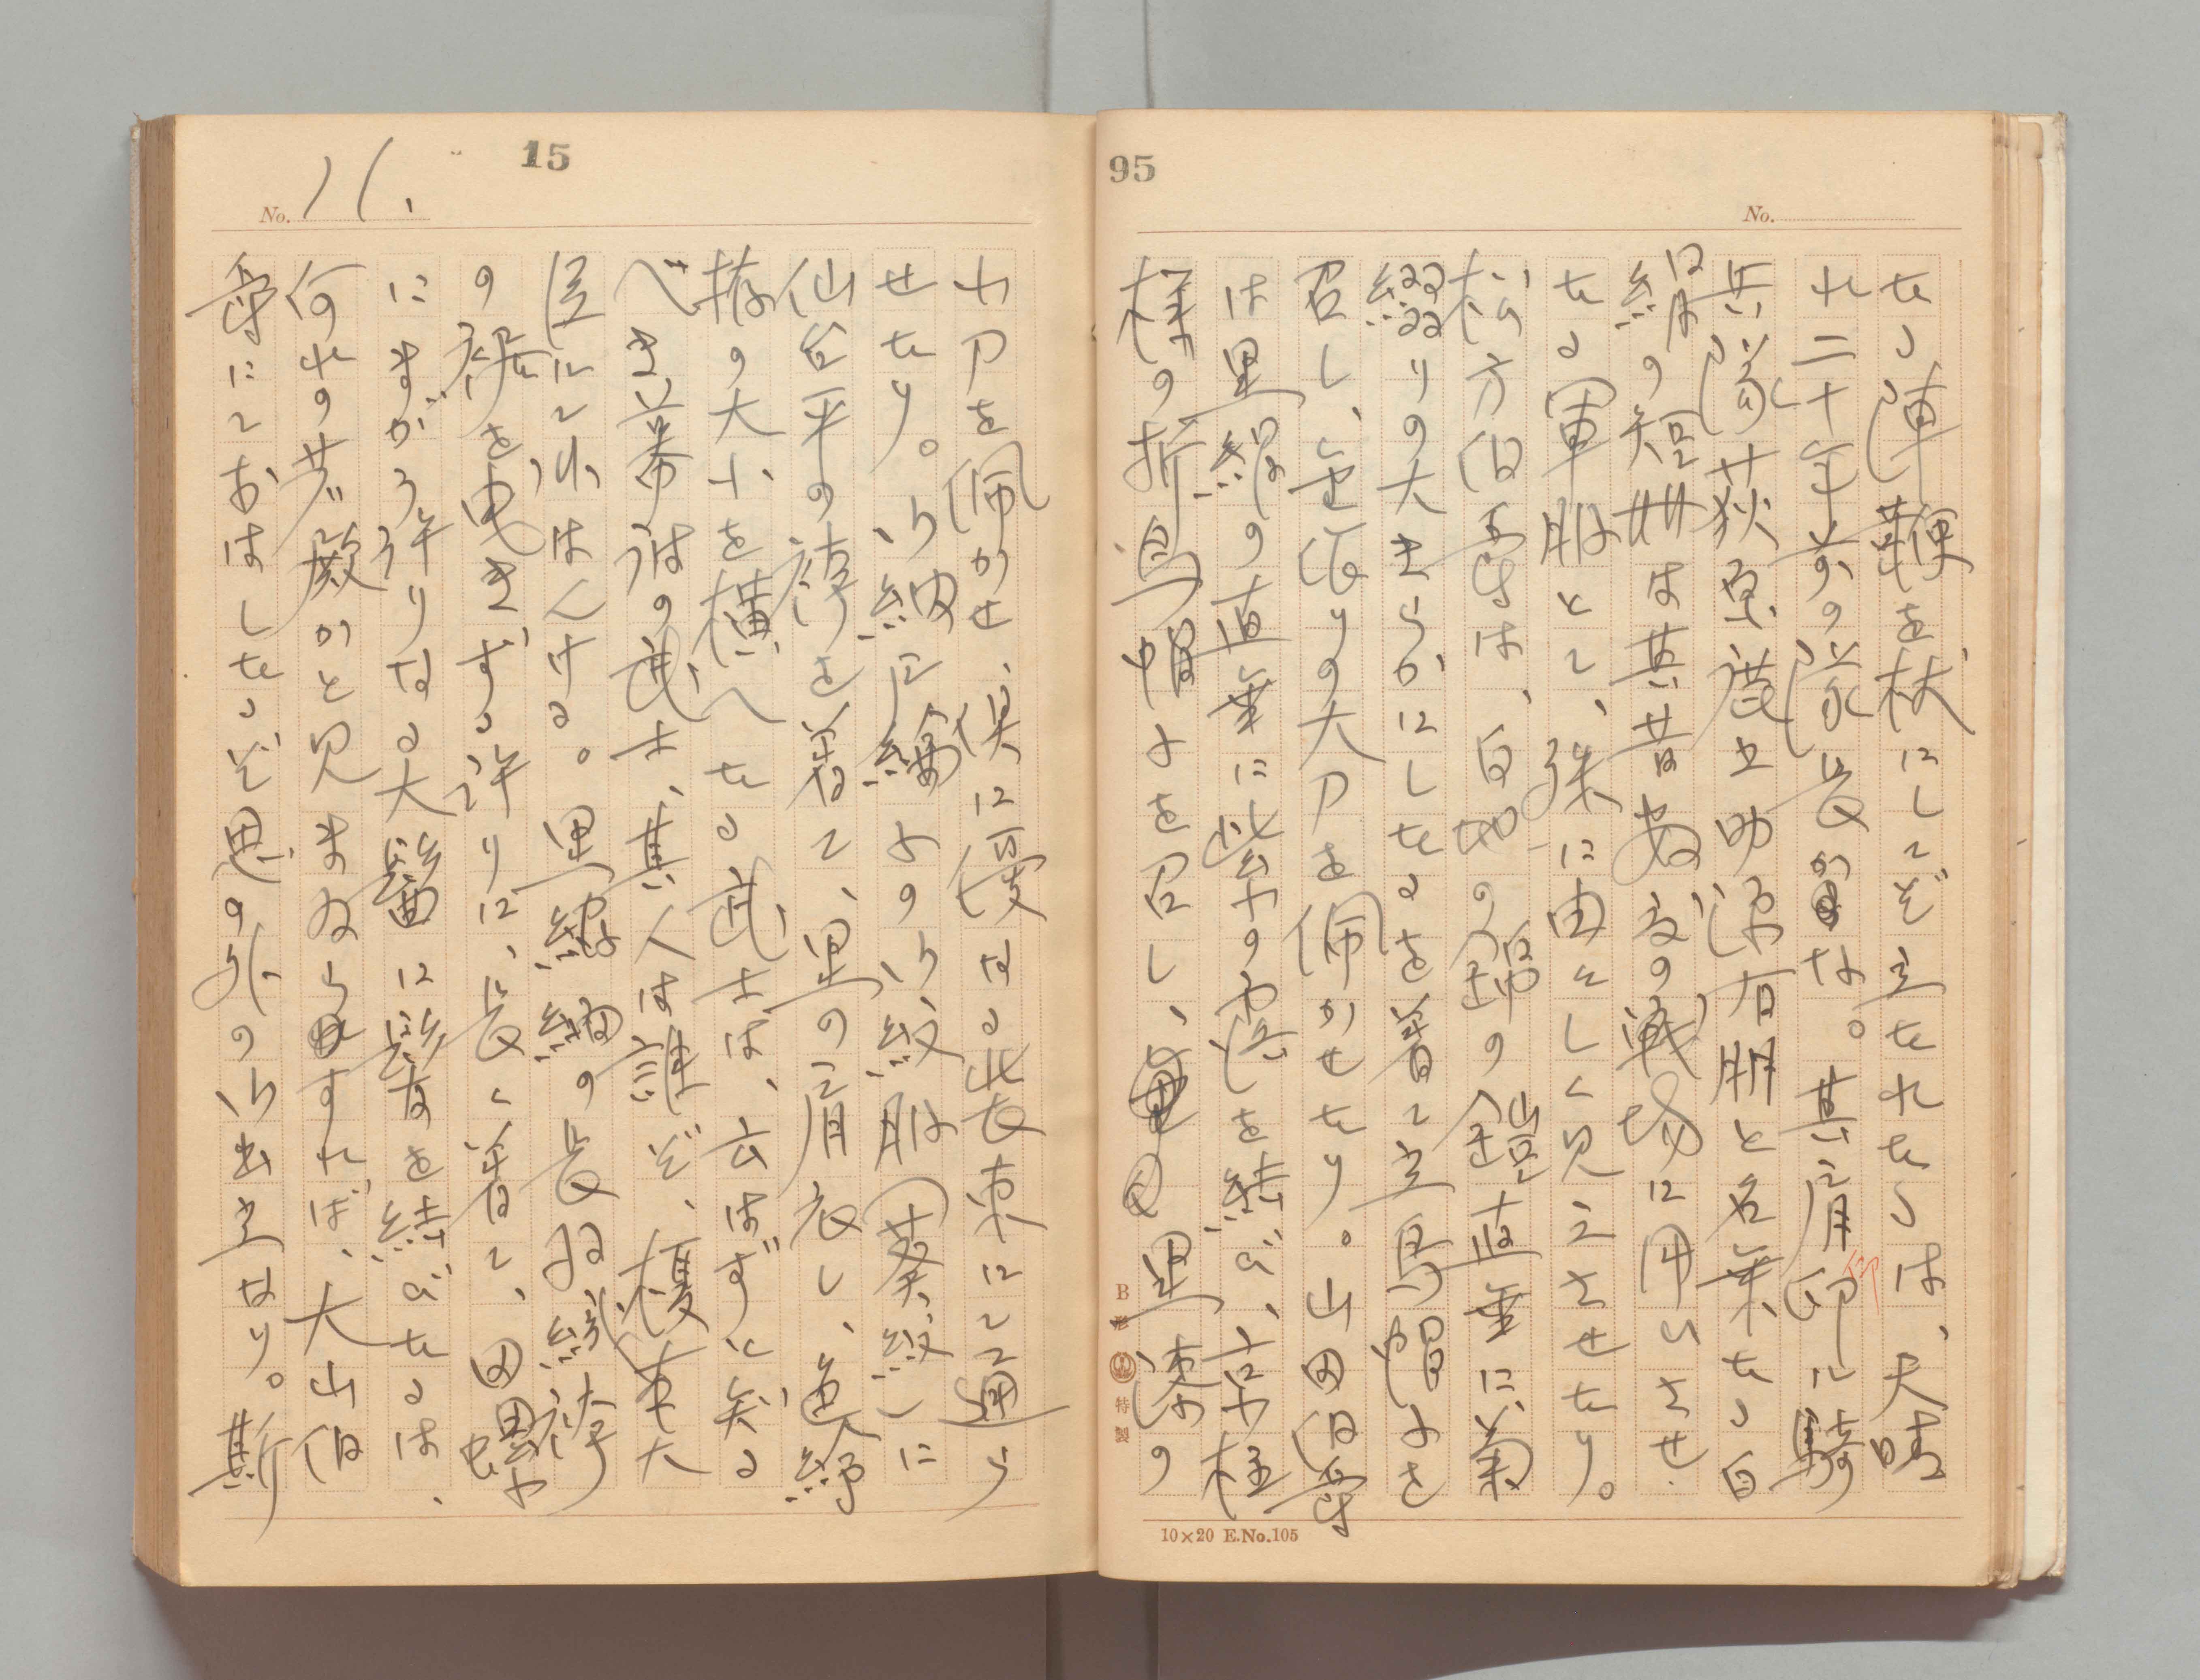 95
No.
たる陣鞭を杖にしてぞ立たれたるは、天晴
れ二十年前の隊長かな。其肩印に騎
兵隊荻原鹿之助源有朋と名乗たる白
絹の短冊は其昔越後の戦場に用いさせ
たる軍服とて、殊に由々しく見えさせたり。
松方伯爵は、白地の錦の鎧直垂に菊
綴りの大きらかにしたるを着て立烏帽子を
召し、金作りの大刀を佩かせたり。山田伯爵
は黒線の直垂に紫の露を結び、古代様
様の折烏帽子を召し、黒漆の
B形 特製
10×20 E.No.105
15
No. 11.
小刀を佩かせ、倶に優なる装束にて通ら
せたり。御納戸縮よの御紋服(葵紋)に
仙台平の袴を着て、黒の肩衣し、蝋色鞘
拵の大小を横へたる武士は、云はずに知る
べき幕府の武士、其人は誰ぞ、榎本大
臣にて御はんける。黒縮緬の長羽織袴
の裾を曳きずる許りに、長く着て、田螺
にまがう許りなる大髷に髪を結びたるは、
何れの芳殿かと見まゐらすれば、大山伯
爵にておはしたるぞ思の外の御出立なり。斯